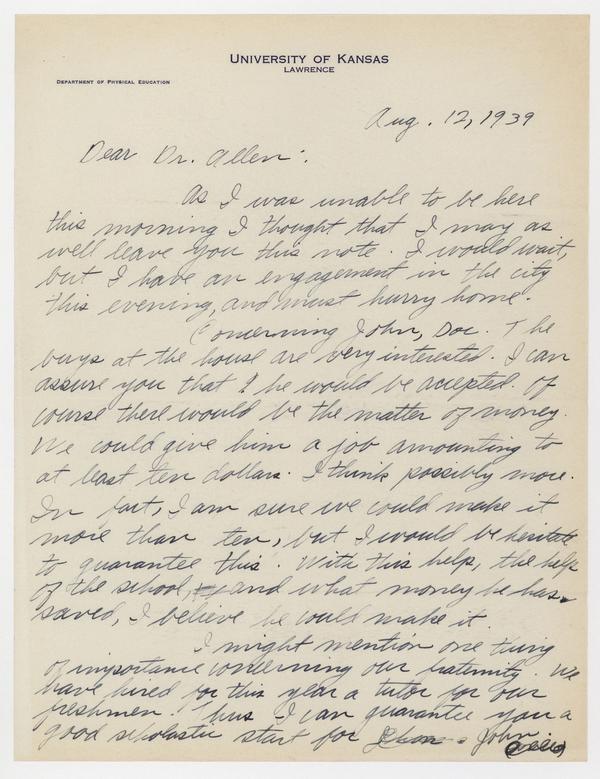 UNIVERSITY OF KANSAS
LAWRENCE
DEPARTMENT OF PHYSICAL EDUCATION
Aug. 12, 1939
Dear Dr. Allen:
As I was unable to be here
this morning I thought that I may as
well leave you this note. I would wait,
but I have an engagement in the city
this evening, and must hurry home.
Concerning John, Doc. The
boys at the house are very interested. I can
assure you that he would be accepted. Of
course there would be the matter of money.
We could give him a job amounting to
at least ten dollars. I think possibly more.
In fact, I am sure we could make it
more than ten, but I would be hesitate
to guarantee this. With this help, the help
of the school, and what money he has
saved, I believe he could make it.
I might mention one thing
of importance concerning our fraternity. We
have hired for this year a tutor for our
freshmen. Thus I can guarantee you a
good scholastic start for John.
(over)